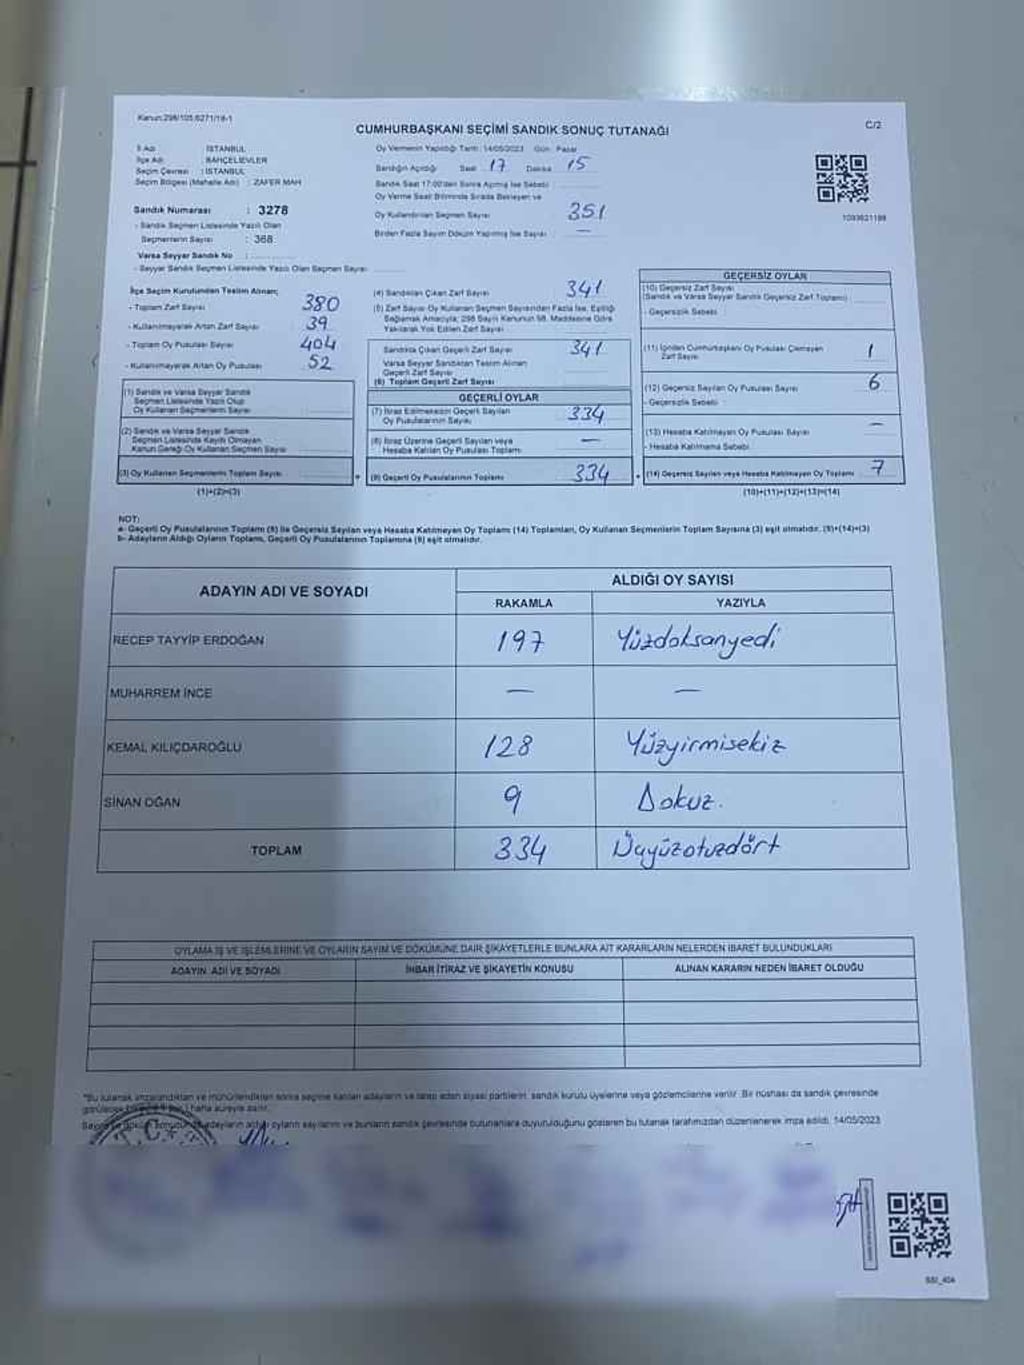 Kanun:298/105,6271/19-1
C/2
CUMHURBAŞKANI SEÇİMİ SANDIK SONUÇ TUTANAĞI
İl Adı : İSTANBUL
İlçe Adı : BAHÇELİEVLER
Seçim Çevresi : İSTANBUL
Seçim Bölgesi (Mahalle Adı) : ZAFER MAH
Sandık Numarası : 3278
- Sandık Seçmen Listesinde Yazılı Olan
Seçmenlerin Sayısı : 368
Varsa Seyyar Sandık No :
- Seyyar Sandık Seçmen Listesinde Yazılı Olan Seçmen Sayısı:
Oy Vermenin Yapıldığı Tarih :14/05/2023 Gün: Pazar
Sandığın Açıldığı Saat 17 Dakika 15
Sandık Saat 17:00'den Sonra Açılmış İse Sebebi :
Oy Verme Saati Bitiminde Sırada Bekleyen ve
Oy Kullandırılan Seçmen Sayısı : 351
Birden Fazla Sayım Döküm Yapılmış İse Sayısı : —
1093621198
İlçe Seçim Kurulundan Teslim Alınan;
- Toplam Zarf Sayısı : 380
- Kullanılmayarak Artan Zarf Sayısı : 39
- Toplam Oy Pusulası Sayısı : 404
- Kullanılmayarak Artan Oy Pusulası : 52
(1) Sandık ve Varsa Seyyar Sandık
Seçmen Listesinde Yazılı Olup
Oy Kullanan Seçmenlerin Sayısı
(2) Sandık ve Varsa Seyyar Sandık
Seçmen Listesinde Kayıtlı Olmayan
Kanun Gereği Oy Kullanan Seçmen Sayısı
(3) Oy Kullanan Seçmenlerin Toplam Sayısı
(1)+(2)=(3)
(4) Sandıktan Çıkan Zarf Sayısı : 341
(5) Zarf Sayısı Oy Kullanan Seçmen Sayısından Fazla İse, Eşitliği
Sağlamak Amacıyla; 298 Sayılı Kanunun 98. Maddesine Göre
Yakılarak Yok Edilen Zarf Sayısı
Sandıkta Çıkan Geçerli Zarf Sayısı : 341
Varsa Seyyar Sandıktan Teslim Alınan
Geçerli Zarf Sayısı
(6) Toplam Geçerli Zarf Sayısı
GEÇERLİ OYLAR
(7) İtiraz Edilmeksizin Geçerli Sayılan
Oy Pusulalarının Sayısı : 334
(8) İtiraz Üzerine Geçerli Sayılan veya
Hesaba Katılan Oy Pusulası Toplamı : —
(9) Geçerli Oy Pusulalarının Toplamı : 334
GEÇERSİZ OYLAR
(10) Geçersiz Zarf Sayısı
(Sandık ve Varsa Seyyar Sandık Geçersiz Zarf Toplamı)
- Geçersizlik Sebebi :
(11) İçinden Cumhurbaşkanı Oy Pusulası Çıkmayan
Zarf Sayısı : 1
(12) Geçersiz Sayılan Oy Pusulası Sayısı : 6
- Geçersizlik Sebebi :
(13) Hesaba Katılmayan Oy Pusulası Sayısı : —
- Hesaba Katılmama Sebebi :
(14) Geçersiz Sayılan veya Hesaba Katılmayan Oy Toplamı : 7
(10)+(11)+(12)+(13)=(14)
NOT:
a- Geçerli Oy Pusulalarının Toplamı (9) ile Geçersiz Sayılan veya Hesaba Katılmayan Oy Toplamı (14) Toplamları, Oy Kullanan Seçmenlerin Toplam Sayısına (3) eşit olmalıdır. (9)+(14)=(3)
b- Adayların Aldığı Oyların Toplamı, Geçerli Oy Pusulalarının Toplamına (9) eşit olmalıdır.
ADAYIN ADI VE SOYADI ALDIĞI OY SAYISI
RAKAMLA YAZIYLA
RECEP TAYYİP ERDOĞAN 197 Yüzdoksanyedi
MUHARREM İNCE — —
KEMAL KILIÇDAROĞLU 128 Yüzyirmisekiz
SİNAN OĞAN 9 Dokuz.
TOPLAM 334 Üçyüzotuzdört
OYLAMA İŞ VE İŞLEMLERİNE VE OYLARIN SAYIM VE DÖKÜMÜNE DAİR ŞİKAYETLERLE BUNLARA AİT KARARLARIN NELERDEN İBARET BULUNDUKLARI
ADAYIN ADI VE SOYADI İHBAR İTİRAZ VE ŞİKAYETİN KONUSU ALINAN KARARIN NEDEN İBARET OLDUĞU
"Bu tutanak imzalandıktan ve mühürlendikten sonra seçime katılan adayların ve talep eden siyasi partilerin, sandık kurulu üyelerine veya gözlemcilerine verilir. Bir nüshası da sandık çevresinde
görülecek bir yere bir hafta süreyle asılır.
Sayım ve döküm sonucunda adayların aldığı oyların sayılarını ve bunların sandık çevresinde bulunanlara duyurulduğunu gösteren bu tutanak tarafımızdan düzenlenerek imza edildi. 14/05/2023
T.C.
SSI_404